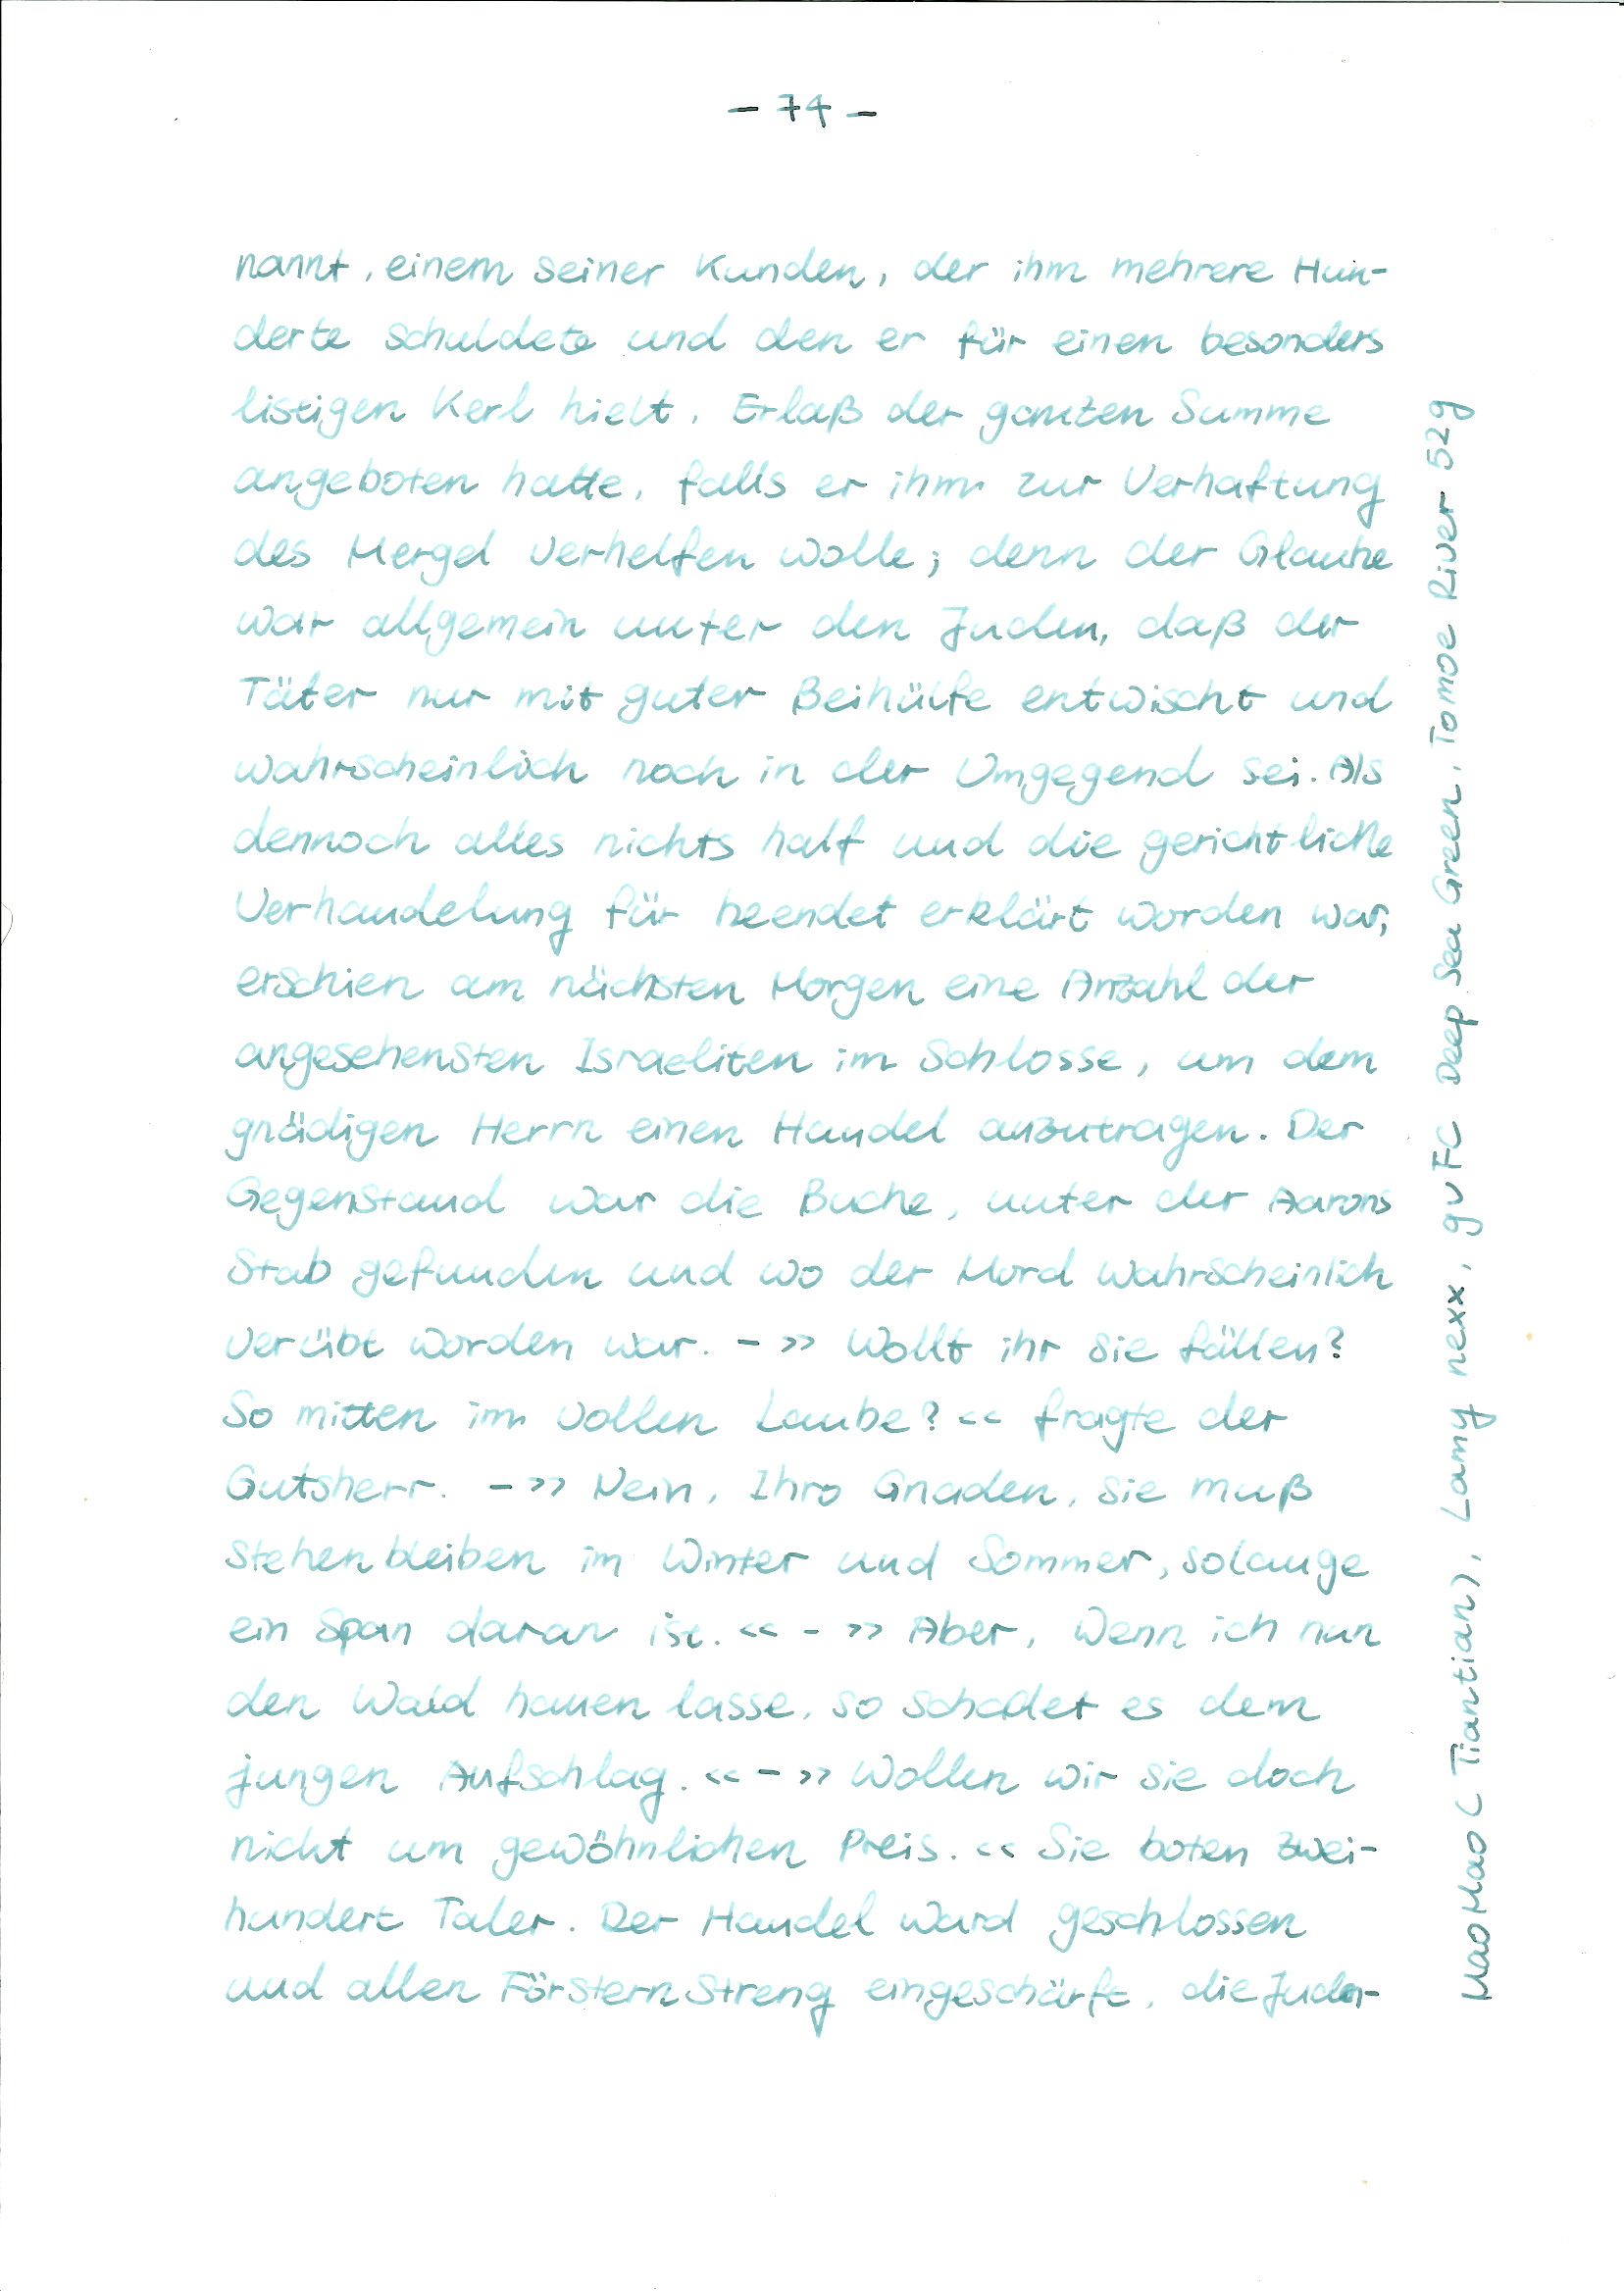 - 74 -
nannt, einem seiner Kunden, der ihm mehrere Hun-
derte schuldete und den er für einen besonders
listigen Kerl hielt, Erlaß der ganzen Summe
angeboten hatte, falls er ihm zur Verhaftung
des Mergel verhelfen wolle; denn der Glaube
war allgemein unter den Juden, daß der
Täter nur mit guter Beihülfe entwischt und
wahrscheinlich noch in der Umgegend sei. Als
dennoch alles nichts half und die gerichtliche
Verhandelung für beendet erklärt worden war,
erschien am nächsten Morgen eine Anzahl der
angesehensten Israeliten im Schlosse, um dem
gnädigen Herrn einen Handel anzutragen. Der
Gegenstand war die Buche, unter der Aarons
Stab gefunden und wo der Mord wahrscheinlich
verübt worden war. - >> Wollt ihr sie fällen?
So mitten im vollen Laube? << fragte der
Gutsherr. - >> Nein, Ihro Gnaden, sie muß
stehenbleiben im Winter und Sommer, solange
ein Span daran ist. << - >> Aber, wenn ich nun
den Wald hauen lasse, so schadet es dem
jungen Aufschlag. << - >> Wollen wir sie doch
nicht um gewöhnlichen Preis. << Sie boten zwei-
hundert Taler. Der Handel ward geschlossen
und allen Förstern streng eingeschärft, die Juden-
MaoMao (Tiantian), Lamy nexx, gvFC Deep Sea Green, Tomoe River 52g